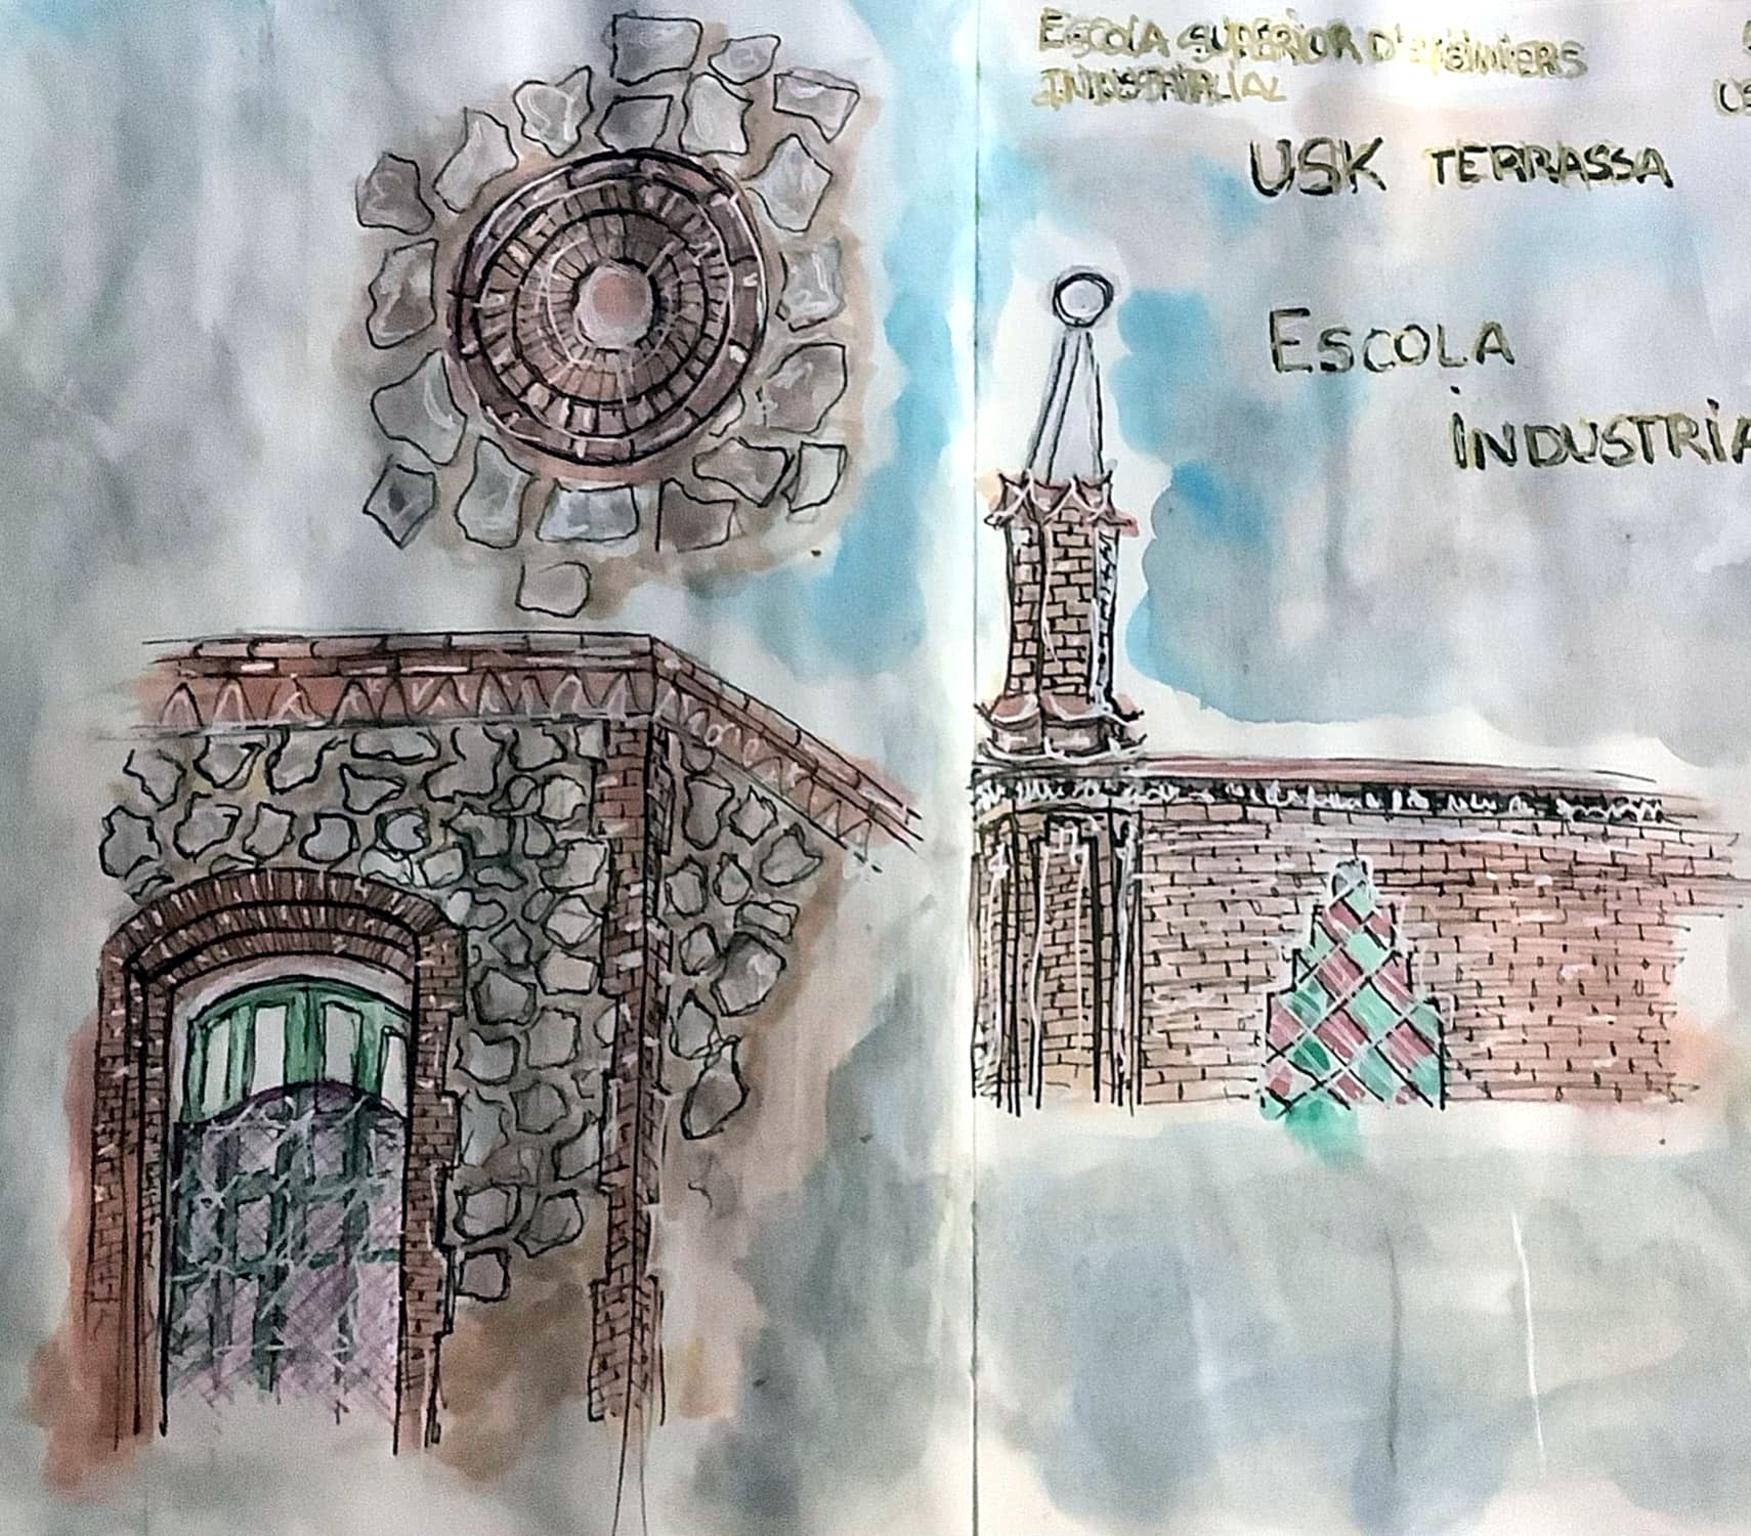 ESCOLA SUPERIOR D'ENGINIERS
INDUSTRIAL
USK TERRASSA
ESCOLA
INDUSTRIA